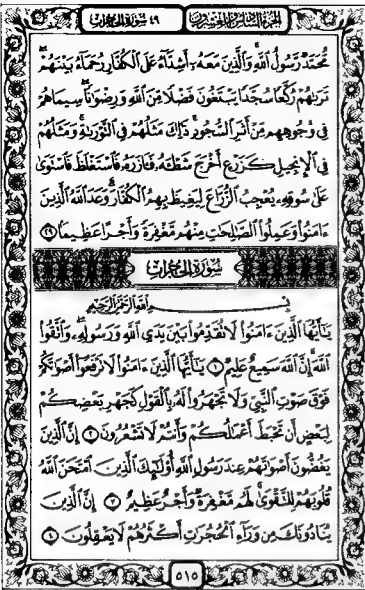 الجزء السادس والعشرون ٤٩ سورة الحجرات
مُّحَمَّدٌ رَّسُولُ ٱللَّهِ وَٱلَّذِينَ مَعَهُۥٓ أَشِدَّآءُ عَلَى ٱلْكُفَّارِ رُحَمَآءُ بَيْنَهُمْ
تَرَىٰهُمْ رُكَّعًا سُجَّدًا يَبْتَغُونَ فَضْلًا مِّنَ ٱللَّهِ وَرِضْوَٰنًا سِيمَاهُمْ
فِى وُجُوهِهِم مِّنْ أَثَرِ ٱلسُّجُودِ ذَٰلِكَ مَثَلُهُمْ فِى ٱلتَّوْرَىٰةِ وَمَثَلُهُمْ
فِى ٱلْإِنجِيلِ كَزَرْعٍ أَخْرَجَ شَطْـَٔهُۥ فَـَٔازَرَهُۥ فَٱسْتَغْلَظَ فَٱسْتَوَىٰ
عَلَىٰ سُوقِهِۦ يُعْجِبُ ٱلزُّرَّاعَ لِيَغِيظَ بِهِمُ ٱلْكُفَّارَ وَعَدَ ٱللَّهُ ٱلَّذِينَ
ءَامَنُوا۟ وَعَمِلُوا۟ ٱلصَّٰلِحَٰتِ مِنْهُم مَّغْفِرَةً وَأَجْرًا عَظِيمًۢا ٢٩
سُورَةُ الحُجُرَاتِ
بِسْمِ ٱللَّهِ ٱلرَّحْمَٰنِ ٱلرَّحِيمِ
يَٰٓأَيُّهَا ٱلَّذِينَ ءَامَنُوا۟ لَا تُقَدِّمُوا۟ بَيْنَ يَدَىِ ٱللَّهِ وَرَسُولِهِۦ وَٱتَّقُوا۟
ٱللَّهَ إِنَّ ٱللَّهَ سَمِيعٌ عَلِيمٌ ١ يَٰٓأَيُّهَا ٱلَّذِينَ ءَامَنُوا۟ لَا تَرْفَعُوٓا۟ أَصْوَٰتَكُمْ
فَوْقَ صَوْتِ ٱلنَّبِىِّ وَلَا تَجْهَرُوا۟ لَهُۥ بِٱلْقَوْلِ كَجَهْرِ بَعْضِكُمْ
لِبَعْضٍ أَن تَحْبَطَ أَعْمَٰلُكُمْ وَأَنتُمْ لَا تَشْعُرُونَ ٢ إِنَّ ٱلَّذِينَ
يَغُضُّونَ أَصْوَٰتَهُمْ عِندَ رَسُولِ ٱللَّهِ أُو۟لَٰٓئِكَ ٱلَّذِينَ ٱمْتَحَنَ ٱللَّهُ
قُلُوبَهُمْ لِلتَّقْوَىٰ لَهُم مَّغْفِرَةٌ وَأَجْرٌ عَظِيمٌ ٣ إِنَّ ٱلَّذِينَ
يُنَادُونَكَ مِن وَرَآءِ ٱلْحُجُرَٰتِ أَكْثَرُهُمْ لَا يَعْقِلُونَ ٤
٥١٥